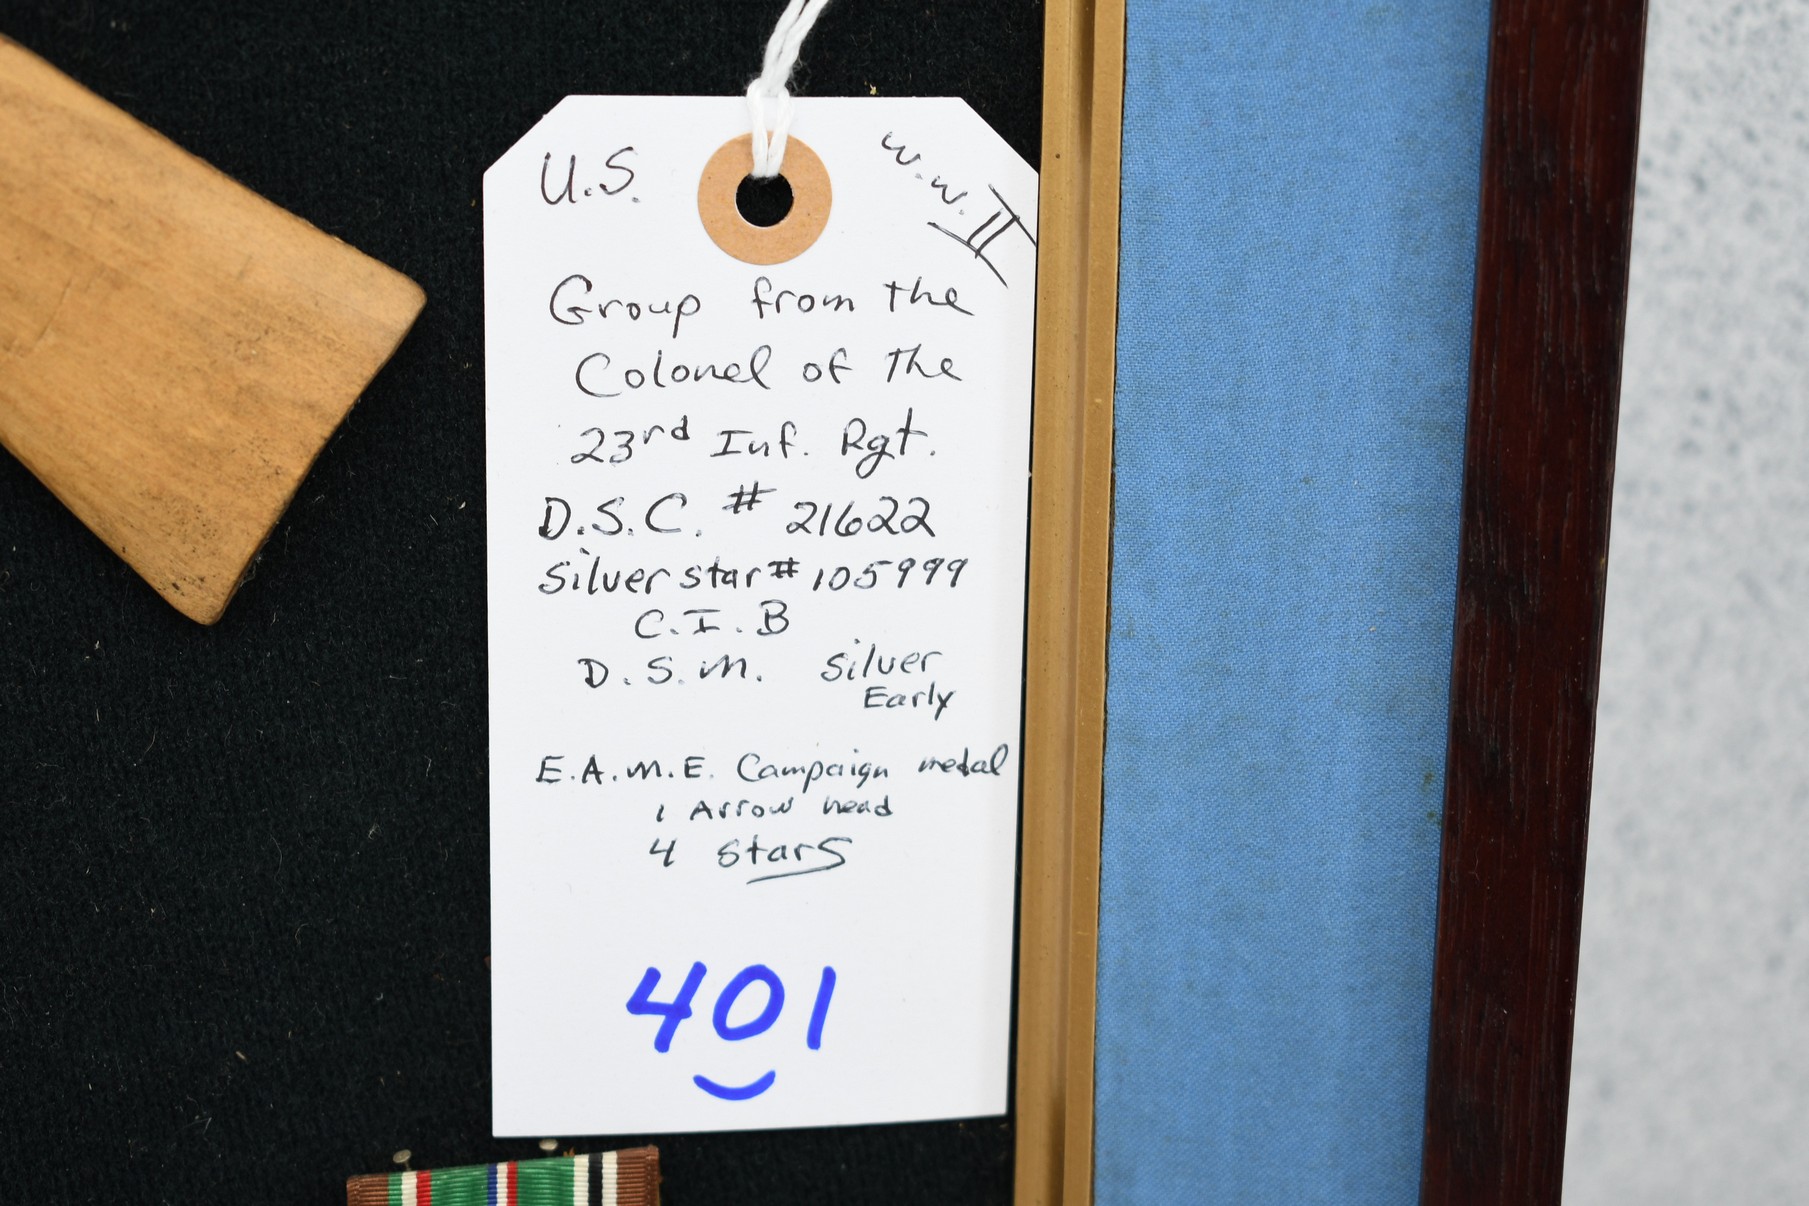 U.S.
W.W. II
Group from the
Colonel of the
23rd Inf. Rgt.
D.S.C. # 21622
Silver star # 105999
C.I.B
D.S.M. Silver
Early
E.A.M.E. Campaign medal
1 Arrow head
4 Stars
401